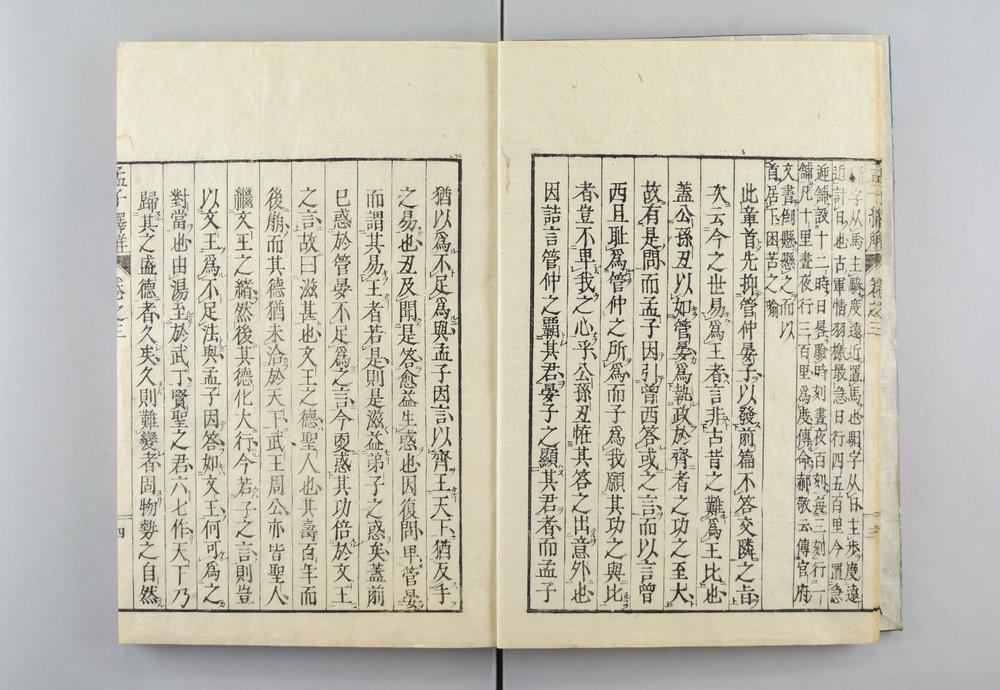 字从馬主騎度遠近置馬也馹字从日主步度遠
近計日也古軍情羽檄最急日行四五百里今置急
遞舖設十二時日晷驗時刻晝夜百刻每三刻行一
舖凡十里晝夜行三百里爲度傳命郝敬云傳官府
文書倒懸懸之而以
首居下困苦之喻
此章首先抑管仲晏子以發前篇不答交隣之旨
次云今之世易爲王者言非古昔之難爲王比也
蓋公孫丑以如管晏爲執政於齊者之功之至大
故有是問而孟子因引曾西答或之言而以言曾
西且耻爲管仲之所爲而子爲我願其功之與比
者豈不畏我之心乎公孫丑恠其答之出意外也
因詰言管仲之覇其君晏子之顯其君者而孟子
猶以爲不足爲與孟子因言以齊王天下猶反手
之易也丑及聞是答愈益生惑也因復問畢管晏
而謂其易王者若是則是滋益弟子之惑矣蓋前
已惑於管晏不足爲之言今更惑其功倍於文王
之言故曰滋甚也文王之德聖人也其壽百年而
後崩而其德猶未洽於天下武王周公亦皆聖人
繼文王之緒然後其德化大行今若子之言則豈
以文王爲不足法與孟子因答如文王何可爲之
對當也由湯至於武丁賢聖之君六七作天下乃
歸其之盛德者久矣久則難變者固物勢之自然
孟子繹解 卷之三
四